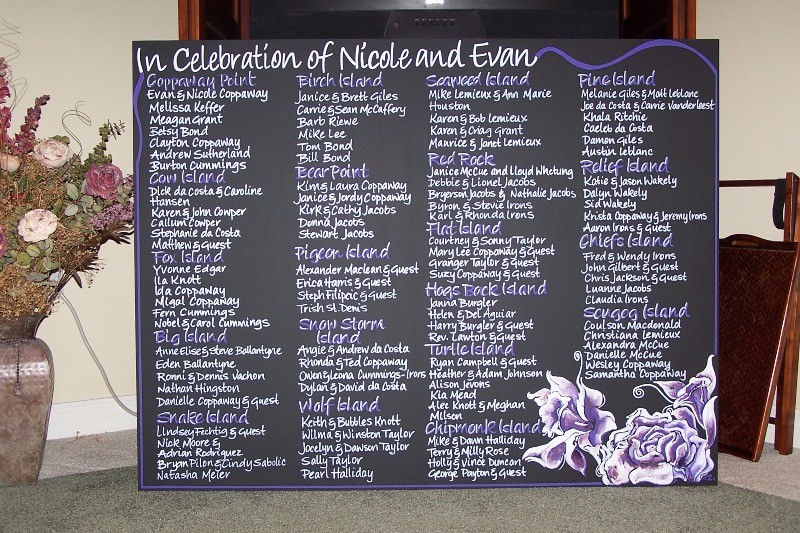 In Celebration of Nicole and Evan
Coppaway Point
Evan & Nicole Coppaway
Melissa Keffer
Meagan Grant
Betsy Bond
Clayton Coppaway
Andrew Sutherland
Burton Cummings
Cow Island
Dick da Costa & Caroline
Hansen
Karen & John Cowper
Callum Cowper
Stephanie da Costa
Matthew & Guest
Fox Island
Yvonne Edgar
Ila Knott
Ida Coppaway
Migal Coppaway
Fern Cummings
Nobel & Carol Cummings
Big Island
Anne Elise & Steve Ballantyne
Eden Ballantyne
Ronni & Dennis Vachon
Nathan Hingston
Danielle Coppaway & Guest
Snake Island
Lindsey Fechtig & Guest
Nick Moore &
Adrian Rodriquez
Bryan Pilon & Cindy Sabolic
Natasha Meier
Birch Island
Janice & Brett Giles
Carrie & Sean McCaffery
Barb Riewe
Mike Lee
Tom Bond
Bill Bond
Bear Point
Kim & Laura Coppaway
Janice & Jordy Coppaway
Kirk & Cathy Jacobs
Donna Jacobs
Stewart Jacobs
Pigeon Island
Alexander Maclean & Guest
Erica Harris & Guest
Steph Filipcic & Guest
Trish St. Denis
Snow Storm
Island
Angie & Andrew da Costa
Rhonda & Ted Coppaway
Owen & Leona Cummings-Irons
Dylan & David da Costa
Wolf Island
Keith & Bubbles Knott
Wilma & Winston Taylor
Jocelyn & Dawson Taylor
Sally Taylor
Pearl Halliday
Seaweed Island
Mike Lemieux & Ann Marie
Houston
Karen & Bob Lemieux
Karen & Craig Grant
Maurice & Janet Lemieux
Red Rock
Janice McCue and Lloyd Whetung
Debbie & Lionel Jacobs
Bryerson Jacobs & Nathalie Jacobs
Byron & Stevie Irons
Karl & Rhonda Irons
Flat Island
Courtney & Sonny Taylor
Mary Lee Coppaway & Guest
Granger Taylor & Guest
Suzy Coppaway & Guest
Hogs Back Island
Jamia Burgler
Helen & Del Aguiar
Harry Burgler & Guest
Rev. Lawton & Guest
Turtle Island
Ryan Campbell & Guest
Heather & Adam Johnson
Alison Jevons
Kia Mead
Alec Knott & Meghan
Milson
Chipmonk Island
Mike & Dawn Halliday
Terry & Milly Rose
Holly & Vince Duncan
George Payton & Guest
Pine Island
Melanie Giles & Matt Leblanc
Joe da Costa & Carrie Vanderleest
Khala Ritchie
Caeleb da Costa
Damon Giles
Austin Leblanc
Relief Island
Katie & Jason Wakely
Dalyn Wakely
Sid Wakely
Krista Coppaway & Jeremy Irons
Aaron Irons & Guest
Chiefs Island
Fred & Wendy Irons
John Gilbert & Guest
Chris Jackson & Guest
Luanne Jacobs
Claudia Irons
Scugog Island
Coulson Macdonald
Christiana Lemieux
Alexandra McCue
Danielle McCue
Wesley Coppaway
Samantha Coppaway